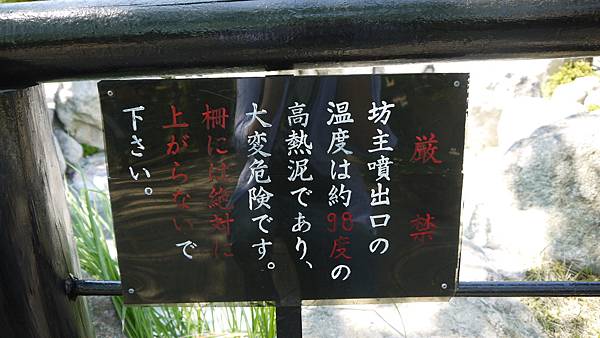 厳禁
坊主噴出口の
温度は約98度の
高熱泥であり、
大変危険です。
柵には絶対に
上がらないで
下さい。